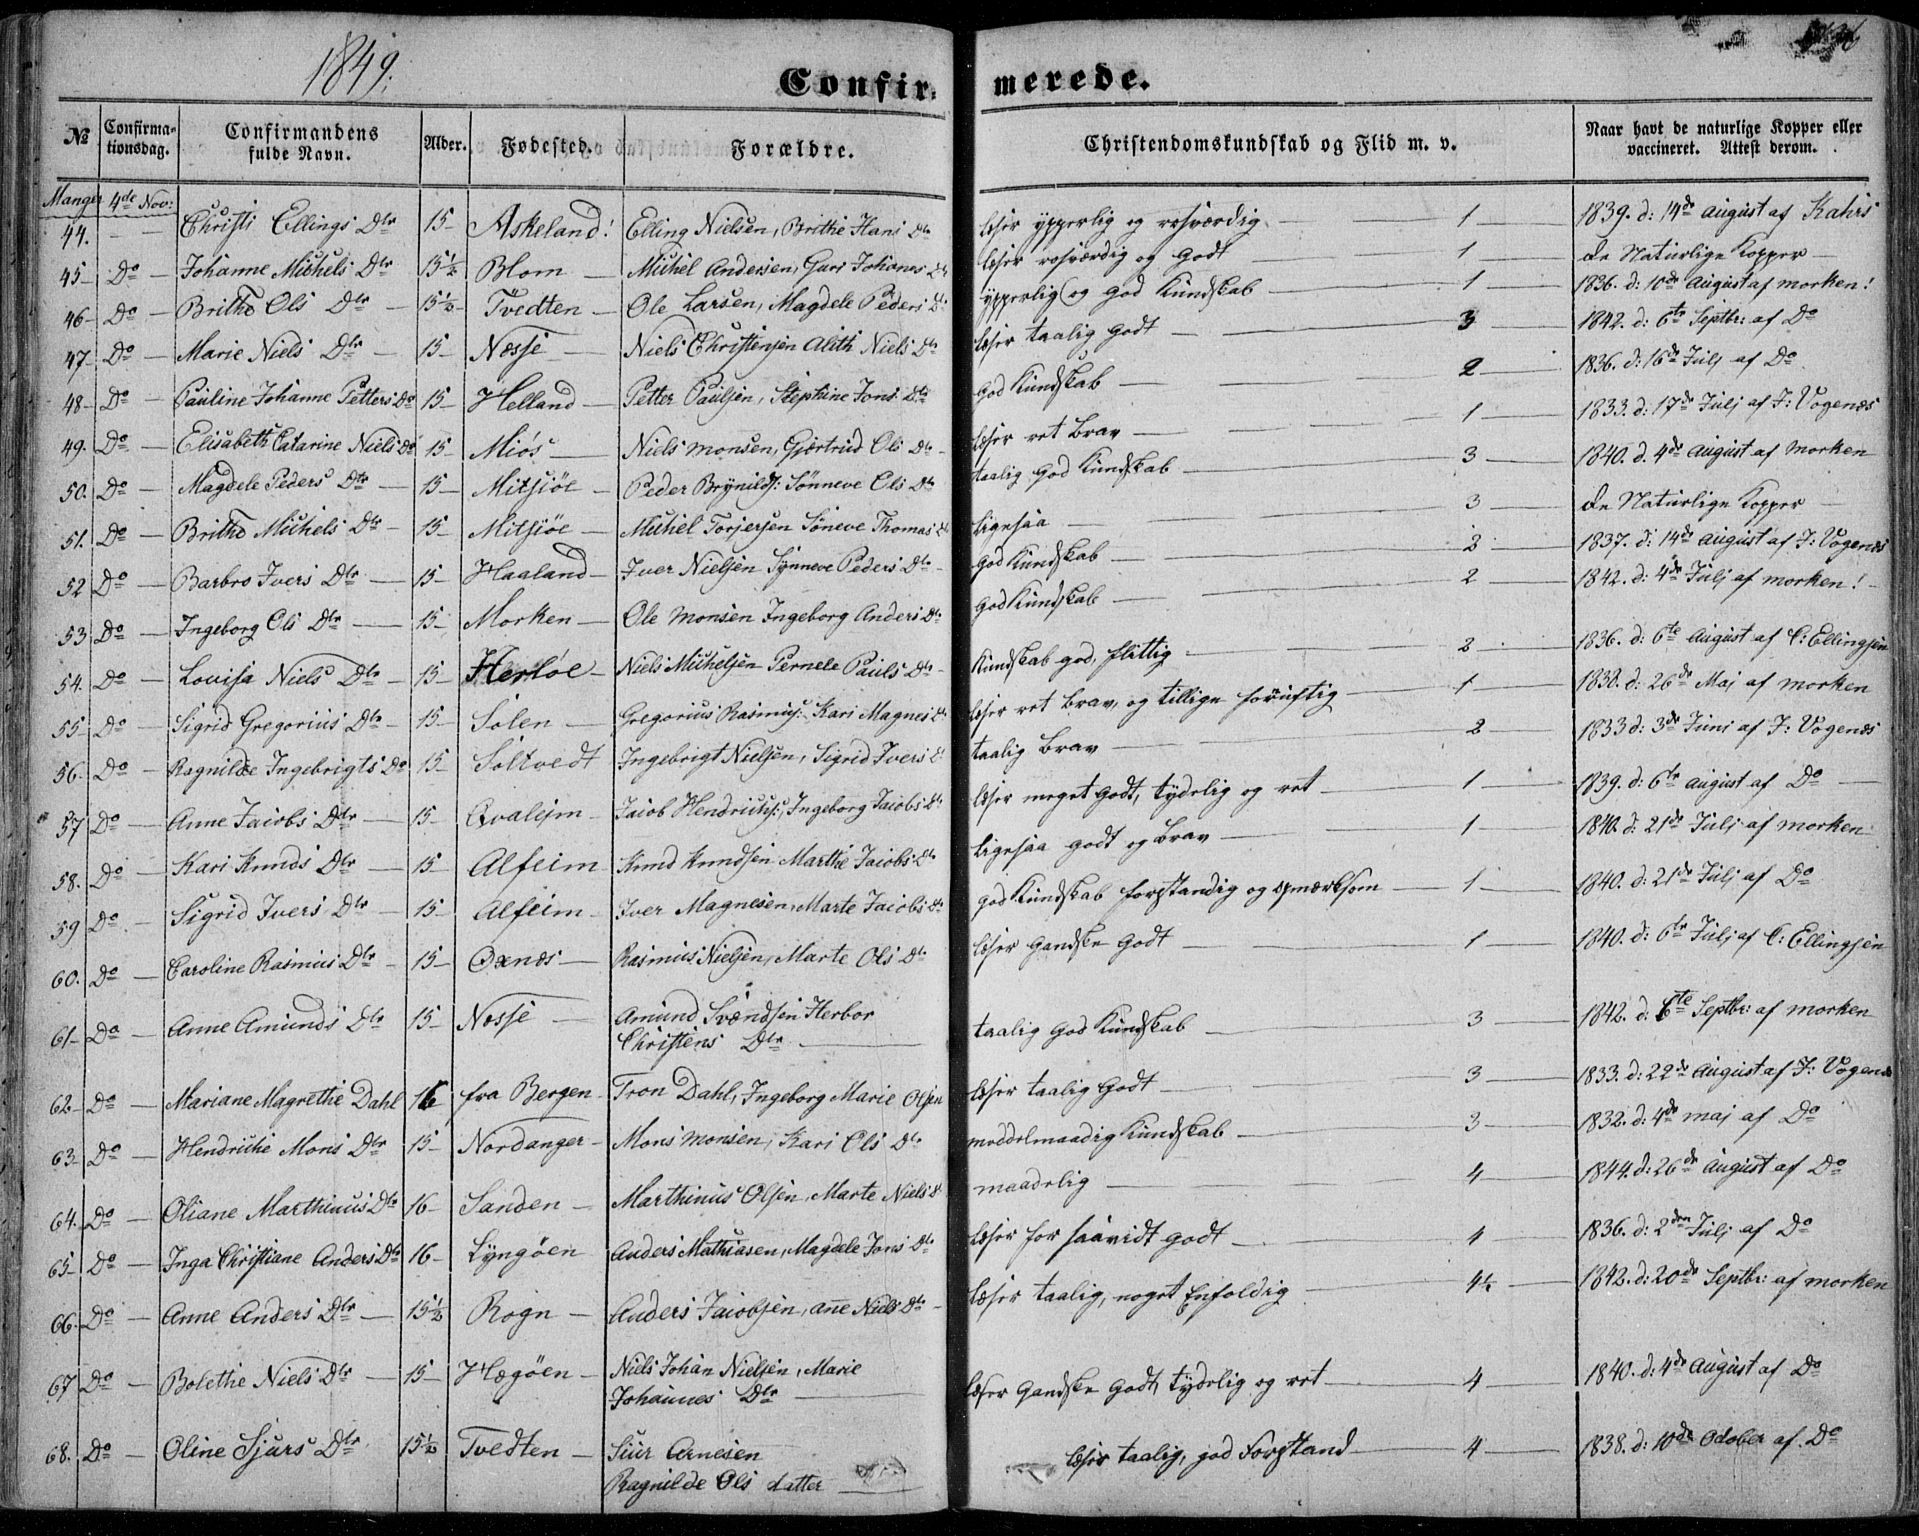 1849.
Confirmerede.
№ Confirmationsdag. Confirmandens fulde Navn. Alder. Fødested. Forældre. Christendomskundskab og Flid m. v. Naar havt de naturlige Kopper eller vaccineret. Attest derom.
Manger 4de Nov:
44. — Christi Ellings Dtr 15 Askeland! Elling Nielsen, Brithe Hans Dtr læser ypperlig og rosværdig 1 1839. d: 14de august af Kahrs
45 Do Johanne Michels Dtr 15½ Blom Michel Andersen, Guri Johanes Dtr læser rosværdig og godt 1 de Naturlige Kopper
46 Do Brithe Ols Dtr 15½ Tvedten Ole Larsen, Magdele Peders Dtr ypperlig og god Kundskab 1 1836. d: 10de august af morken!
47 Do Marie Niels Dtr 15 Næsse Niels Christensen Alith Niels Dtr læser taalig godt 3 1842. d: 6te Septbr: af Do
48 Do Pauline Johanne Petters Do 15 Helland Petter Paulsen, Stephine Jons Dtr god Kundskab 2 1836. d: 16de Julj af Do
49. Do Elisabeth Catarine Niels Do 15 Miøs Niels Monsen, Gjertrud Ols Dtr læser ret brav 1 1833. d: 17de Julj af J: Vogenæs
50. Do Magdele Peders Dtr 15 Mitsiøe Peder Brynilds: Sønneve Ols Dtr taalig god Kundskab 3 1840. d. 4de august af morken
51. Do Brithe Michels Dtr 15 Mitsiøe Michel Torjersen Søneve Thomas Dtr ligesaa 3 de Naturlige Kopper
52 Do Barbro Ivers Dtr 15 Haaland Iver Nielsen Synneve Peders Dtr god Kundskab 2 1837. d: 14de august af J: Vogenæs
53 Do Ingeborg Ols Dtr 15 Morken Ole Monsen Ingeborg Anders Dtr god Kundskab 2 1842. d: 4de Julj af morken!
54. Do Lovisa Niels Dtr 15 Herløe Niels Michelsen Pernele Pauls Dtr Kundskab god, flittig 2 1836. d: 6te august af C: Ellingsen
55 Do Sigrid Gregorius Dtr 15 Solen Gregorius Rasmus: Kari Magnes Dtr læser ret brav, og tillige fornuftig 1 1838. d: 26de Maj af morken
56. Do Ragnilde Ingebrigts Do 15 Soltvedt Ingebrigt Nielsen, Sigrid Ivers Dtr taalig brav 2 1833 d: 3de Juni af J: Vogenæs
57 Do Anne Jacobs Dtr 15 Qvalejm Jacob Hendrichs:, Ingeborg Jacobs Dtr læser meget godt, tydelig og ret 1 1839. d: 6te august af Do
58. Do Kari Knuds Dtr 15 Alfeim Knud Knudsen Marthe Jacobs Dtr ligesaa godt og brav 1 1840. d: 21de Julj af morken
59 Do Sigrid Ivers Dtr 15 Alfeim Iver Magnesen, Marte Jacobs Dtr god Kundskab forstandig og opmærksom 1 1840. d: 21de Julj af Do
60. Do Caroline Rasmus Dtr 15 Oxnæs Rasmus Nielsen, Marte Ols Dtr læser gandske godt 1 1840. d: 6te Julj af C: Ellingsen
61 Do Anne Amunds Dtr 15 Næsse Amund Svendsen Herbor Christens Dtr taalig god Kundskab 3 1842. d: 6te Septbr: af morken
62 Do Mariane Magrethe Dahl 16 fra Bergen Tron Dahl, Ingeborg Marie Olsen læser taalig godt 3 1833. d: 22de august af J: Vogenæs
63 Do Hendriche Mons Dtr 15 Nordanger Mons Monsen, Kari Ols Dtr meddelmaadig Kundskab 3 1832. d: 4de maj af Do
64. Do Oliane Marthinus Dtr 16 Sanden Marthinus Olsen, Marte Niels D maadelig 4 1844. d: 26de august af Do
65 Do Inga Christiane Anders Dtr 16 Lyngøen Anders Mathiasen, Magdele Jons Dtr læser for saavidt godt 4 1836. d: 2den Julj af Do
66. Do Anne Anders Dtr 15½ Rogn Anders Jacobsen, ane Niels Dtr læser taalig, noget Enfoldig 4½ 1842. d: 20de Septbr: af morken
67 Do Bolethe Niels Dtr 15 Hægøen Niels Johan Nielsen, Marie Johannes Dtr læser gandske godt, tydelig og ret 4 1840. d: 4de august af Do
68. Do Oline Sjurs Dtr 15½ Tvedten Siur Arnesen Ragnilde Ols datter læser taalig, god Forstand 4 1838. d: 10de October af Do